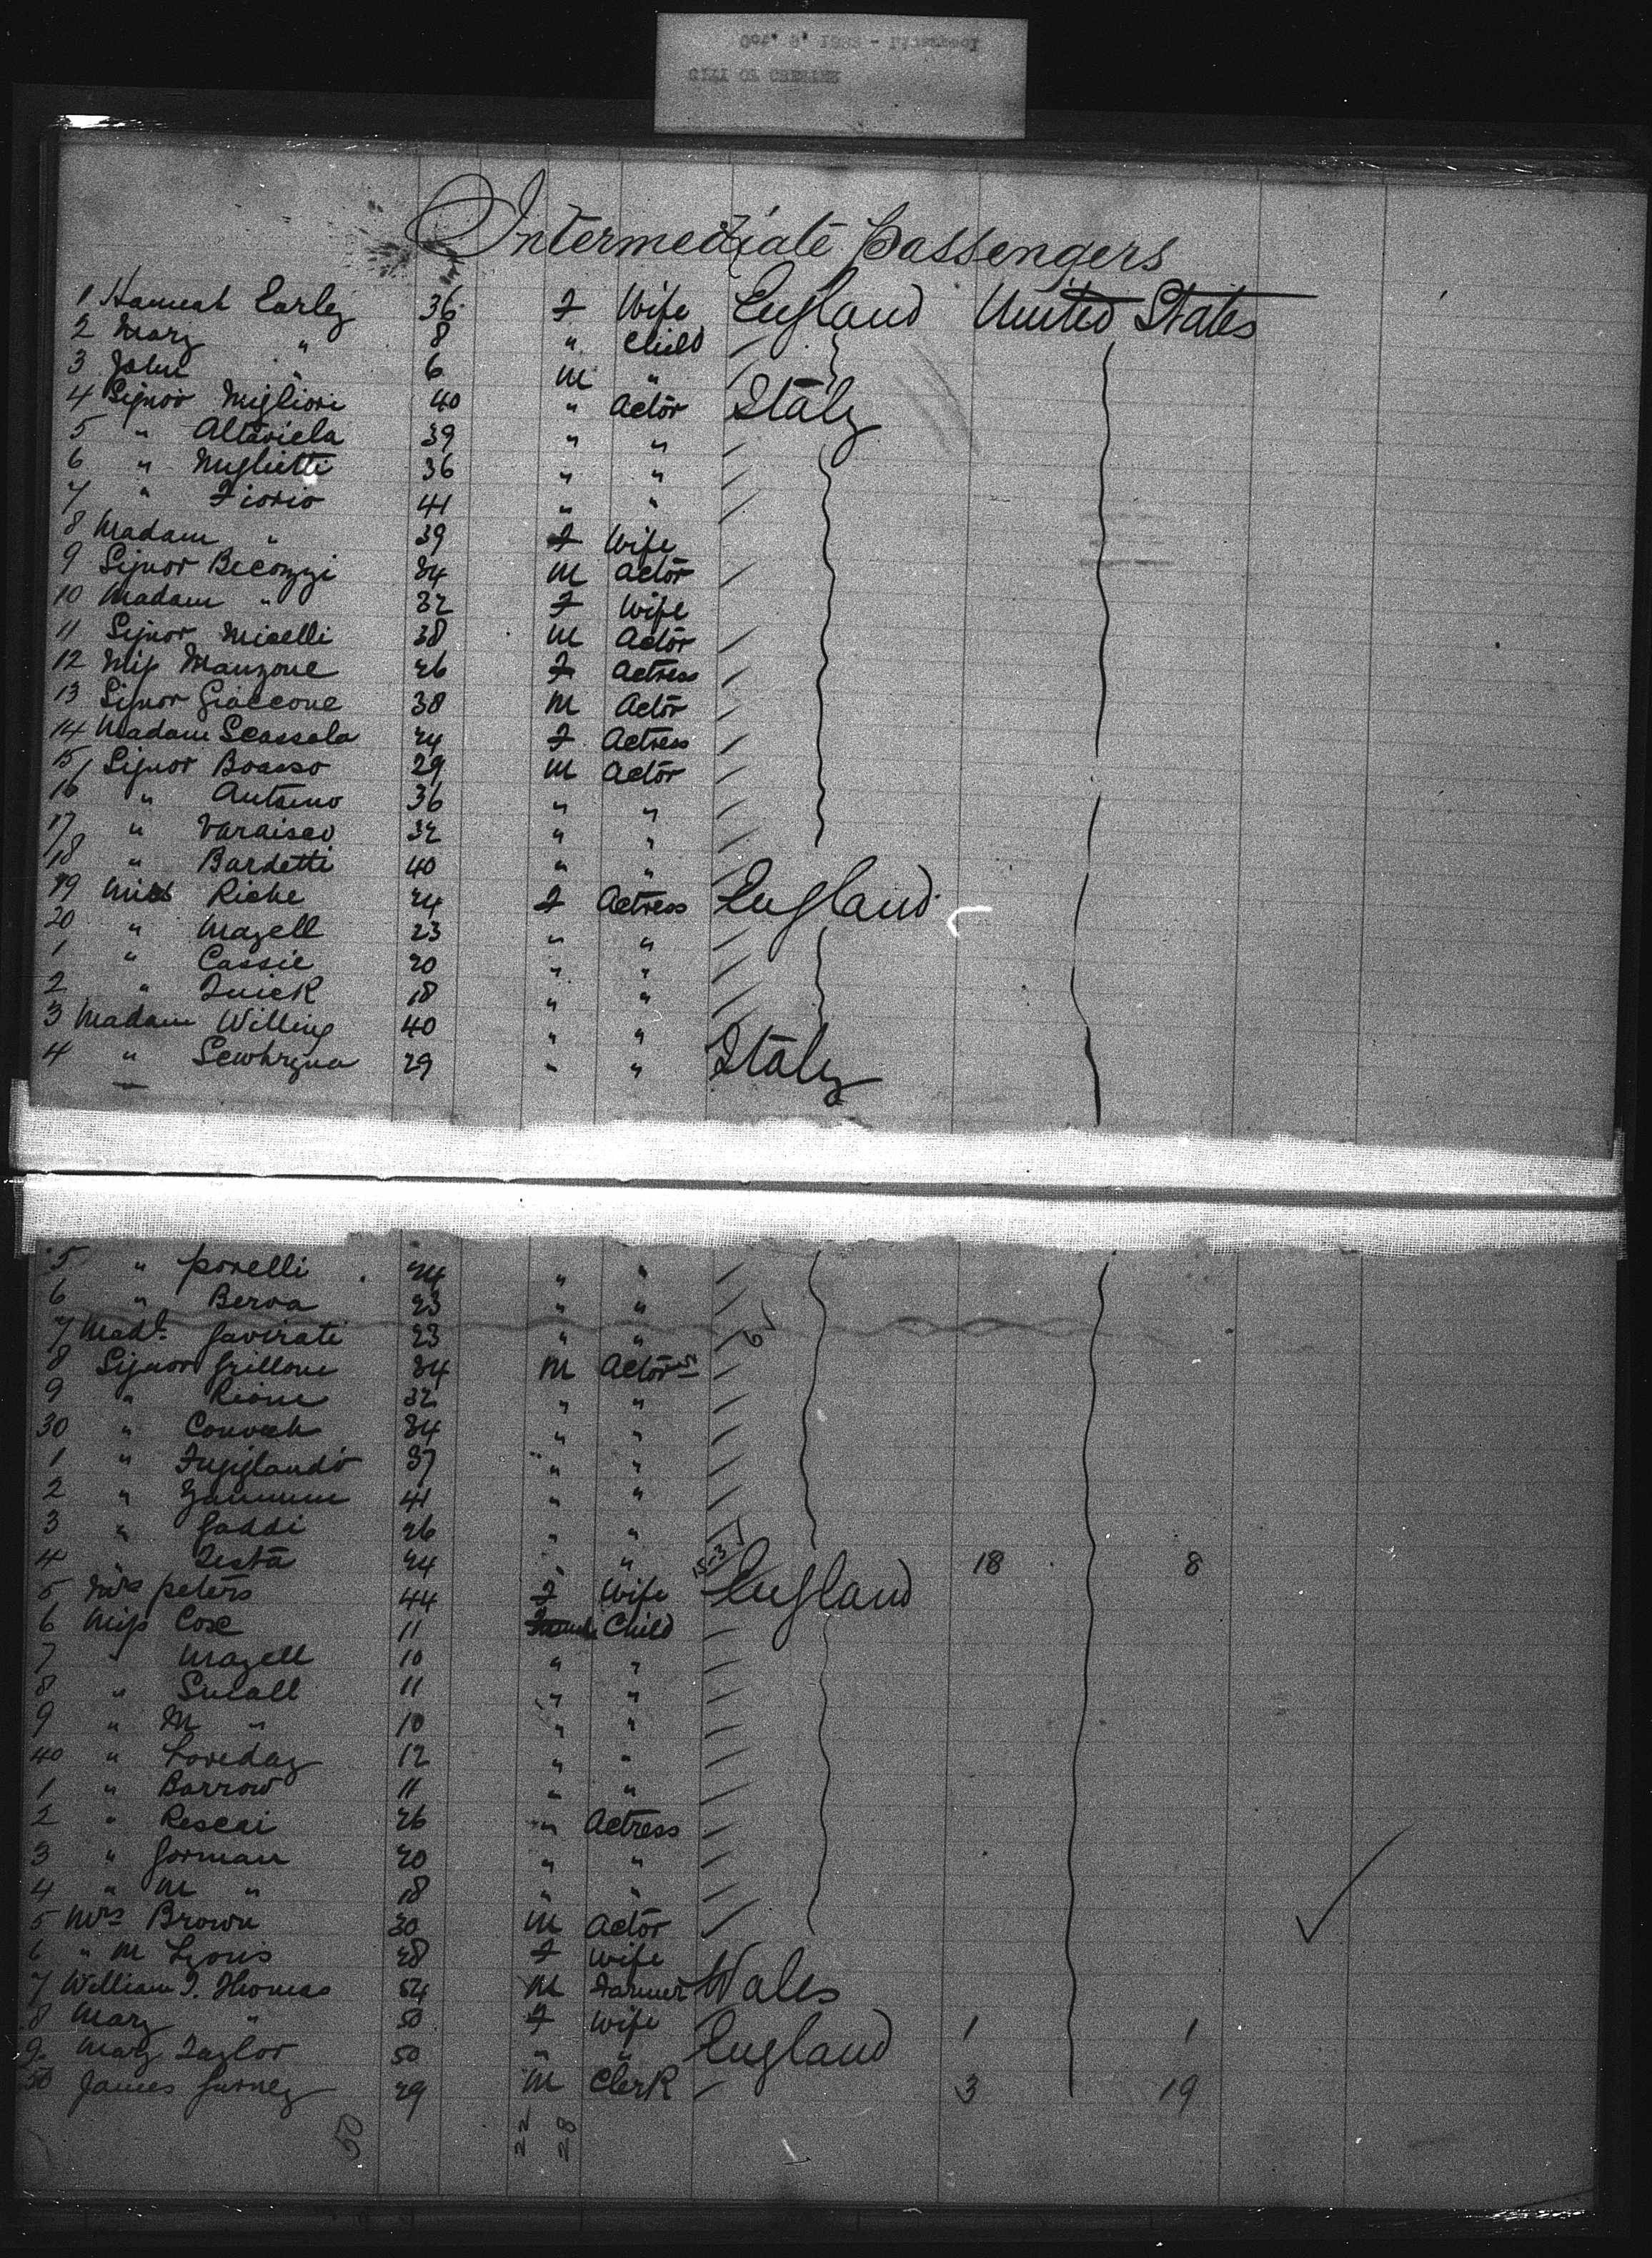 Intermediate Passengers
1 Hannah Earley 36 F Wife England United States
2 Mary " 8 " Child
3 John " 6 M "
4 Signor Migliori 40 " Actor Italy
5 " Altaviela 39 " "
6 " Miglietti 36 " "
7 " Fiorio 41 " "
8 Madam " 39 F Wife
9 Signor Becozzi 34 M Actor
10 Madam " 32 F Wife
11 Signor Micelli 38 M Actor
12 Miss Manzone 26 F Actress
13 Signor Giaccone 38 M Actor
14 Madam Scassola 24 F Actress
15 Signor Boasso 29 M Actor
16 " 36 " "
17 " 32 " "
18 " Bardetti 40 " "
19 Miss Riche 24 F Actress England
20 " Mazell 23 " "
1 " Cassie 20 " "
2 " 18 " "
3 Madam Willing 40 " "
4 " 29 " " Italy
5 " Porelli 24 " "
6 " Beroa 23 " "
7 Madl. Gavirati 23 " "
8 Signor Grilloni 34 M Actors
9 " 32 " "
30 " 34 " "
1 " 37 " "
2 " 41 " "
3 " Gaddi 26 " "
4 " Testa 24 " " 18 8
5 Mrs Peters 44 F Wife England
6 Miss Cox 11 Child
7 " Mazell 10 " "
8 " Small 11 " "
9 " M " 10 " "
40 " Loveday 12 " "
1 " Barrow 11 " "
2 " Rescai 26 " Actress
3 " Gorman 20 " "
4 " M " 18 " "
5 Mrs Brown 30 M Actor
6 " M Lyons 28 F Wife
7 William T. Thomas 54 M Farmer Wales
8 Mary " 50 F Wife 1 1
9 Mary Taylor 50 " " England
50 James Gurney 29 M Clerk 3 19
50 22 28